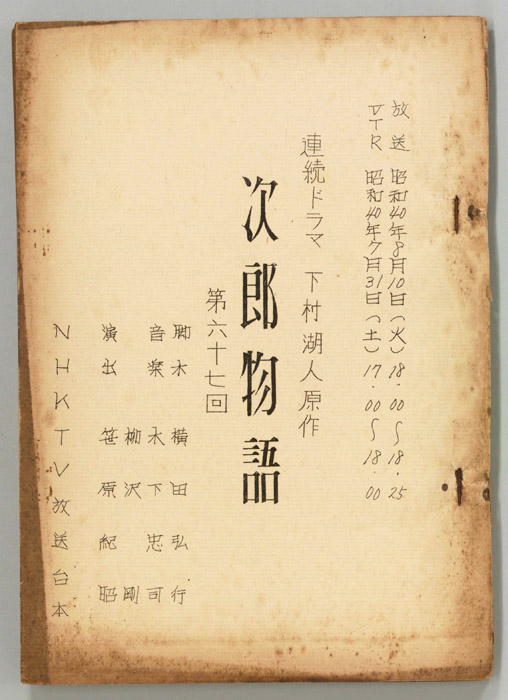 放送 昭和40年8月10日（火）18.00～18.25
VTR 昭和40年7月31日（土）17.00～18.00
連続ドラマ 下村湖人原作
次郎物語
第六十七回
脚本 横田弘行
音楽 木下忠司
柳沢剛
演出 笹原紀昭
NHKTV放送台本